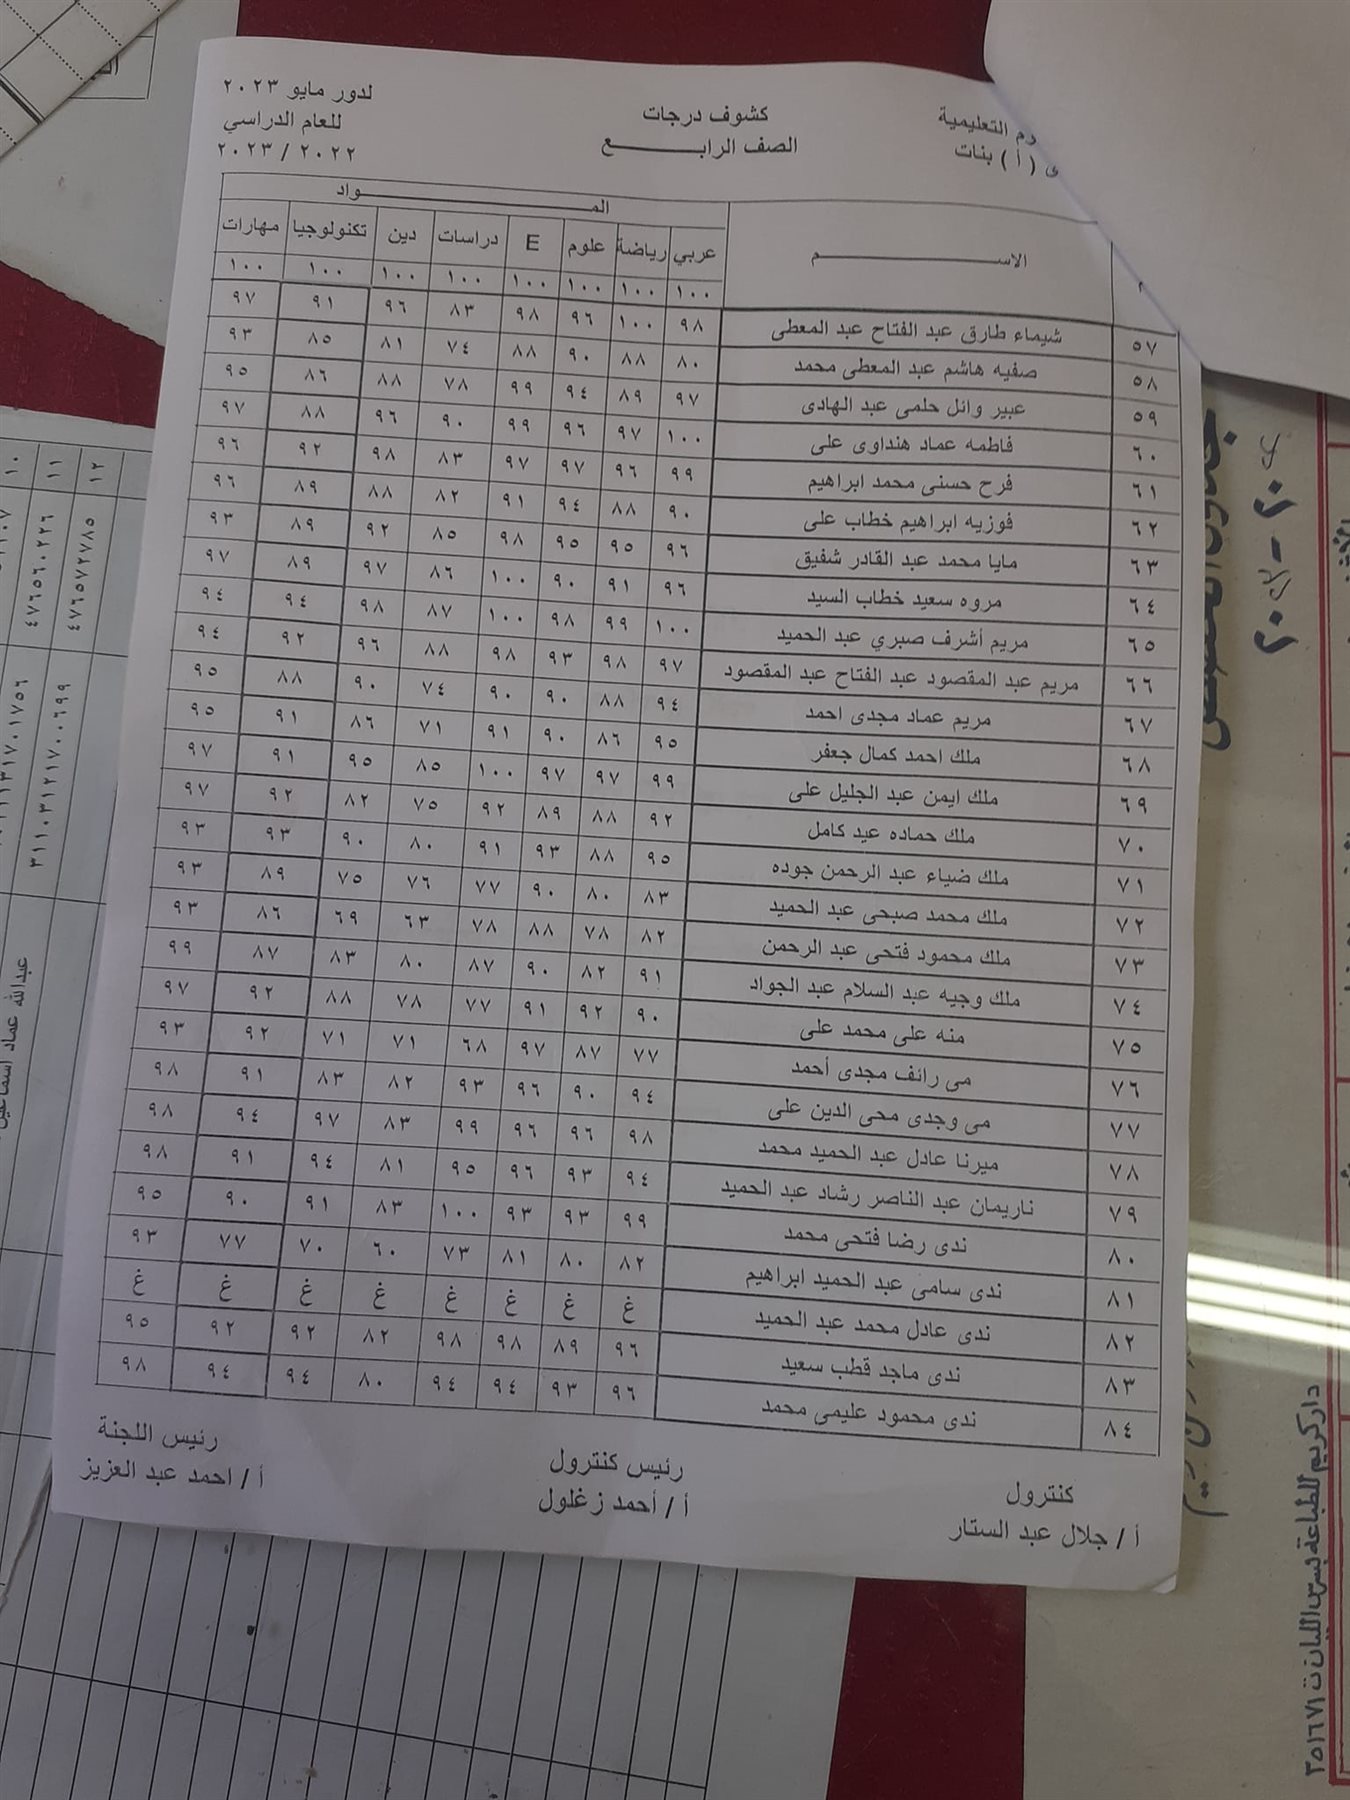 رم التعليمية
(أ) بنات
كشوف درجات
الصف الرابـــــــــع
لدور مايو ٢٠٢٣
للعام الدراسي
٢٠٢٢ / ٢٠٢٣
الاســـــــــــــم المـــــــــــــواد
عربي رياضة علوم E دراسات دين تكنولوجيا مهارات
١٠٠ ١٠٠ ١٠٠ ١٠٠ ١٠٠ ١٠٠ ١٠٠ ١٠٠
٥٧ شيماء طارق عبد الفتاح عبد المعطى ٩٨ ١٠٠ ٩٦ ٩٨ ٨٣ ٩٦ ٩١ ٩٧
٥٨ صفيه هاشم عبد المعطى محمد ٨٠ ٨٨ ٩٠ ٨٨ ٧٤ ٨١ ٨٥ ٩٣
٥٩ عبير وائل حلمى عبد الهادى ٩٧ ٨٩ ٩٤ ٩٩ ٧٨ ٨٨ ٨٦ ٩٥
٦٠ فاطمه عماد هنداوى على ١٠٠ ٩٧ ٩٦ ٩٩ ٩٠ ٩٦ ٨٨ ٩٧
٦١ فرح حسنى محمد ابراهيم ٩٩ ٩٦ ٩٧ ٩٧ ٨٣ ٩٨ ٩٢ ٩٦
٦٢ فوزيه ابراهيم خطاب على ٩٠ ٨٨ ٩٤ ٩١ ٨٢ ٨٨ ٨٩ ٩٦
٦٣ مايا محمد عبد القادر شفيق ٩٦ ٩٥ ٩٥ ٩٨ ٨٥ ٩٢ ٨٩ ٩٣
٦٤ مروه سعيد خطاب السيد ٩٦ ٩١ ٩٠ ١٠٠ ٨٦ ٩٧ ٨٩ ٩٧
٦٥ مريم أشرف صبري عبد الحميد ١٠٠ ٩٩ ٩٨ ١٠٠ ٨٧ ٩٨ ٩٤ ٩٤
٦٦ مريم عبد المقصود عبد الفتاح عبد المقصود ٩٧ ٩٨ ٩٣ ٩٨ ٨٨ ٩٦ ٩٢ ٩٤
٦٧ مريم عماد مجدى احمد ٩٤ ٨٨ ٩٠ ٩٠ ٧٤ ٩٠ ٨٨ ٩٥
٦٨ ملك احمد كمال جعفر ٩٥ ٨٦ ٩٠ ٩١ ٧١ ٨٦ ٩١ ٩٥
٦٩ ملك ايمن عبد الجليل على ٩٩ ٩٧ ٩٧ ١٠٠ ٨٥ ٩٥ ٩١ ٩٧
٧٠ ملك حماده عيد كامل ٩٢ ٨٨ ٨٩ ٩٢ ٧٥ ٨٢ ٩٢ ٩٧
٧١ ملك ضياء عبد الرحمن جوده ٩٥ ٨٨ ٩٣ ٩١ ٨٠ ٩٠ ٩٣ ٩٣
٧٢ ملك محمد صبحى عبد الحميد ٨٣ ٨٠ ٩٠ ٧٧ ٧٦ ٧٥ ٨٩ ٩٣
٧٣ ملك محمود فتحى عبد الرحمن ٨٢ ٧٨ ٨٨ ٧٨ ٦٣ ٦٩ ٨٦ ٩٣
٧٤ ملك وجيه عبد السلام عبد الجواد ٩١ ٨٢ ٩٠ ٨٧ ٨٠ ٨٣ ٨٧ ٩٩
٧٥ منه على محمد على ٩٠ ٩٢ ٩١ ٧٧ ٧٨ ٨٨ ٩٢ ٩٧
٧٦ مى رائف مجدى أحمد ٧٧ ٨٧ ٩٧ ٦٨ ٧١ ٧١ ٩٢ ٩٣
٧٧ مى وجدى محى الدين على ٩٤ ٩٠ ٩٦ ٩٣ ٨٢ ٨٣ ٩١ ٩٨
٧٨ ميرنا عادل عبد الحميد محمد ٩٨ ٩٦ ٩٦ ٩٩ ٨٣ ٩٧ ٩٤ ٩٨
٧٩ ناريمان عبد الناصر رشاد عبد الحميد ٩٤ ٩٣ ٩٦ ٩٥ ٨١ ٩٤ ٩١ ٩٨
٨٠ ندى رضا فتحى محمد ٩٩ ٩٣ ٩٣ ١٠٠ ٨٣ ٩١ ٩٠ ٩٥
٨١ ندى سامى عبد الحميد ابراهيم ٨٢ ٨٠ ٨١ ٧٣ ٦٠ ٧٠ ٧٧ ٩٣
٨٢ ندى عادل محمد عبد الحميد غ غ غ غ غ غ غ غ
٨٣ ندى ماجد قطب سعيد ٩٦ ٨٩ ٩٨ ٩٨ ٨٢ ٩٢ ٩٢ ٩٥
٨٤ ندى محمود عليمى محمد ٩٦ ٩٣ ٩٤ ٩٤ ٨٠ ٩٤ ٩٤ ٩٨
كنترول رئيس كنترول رئيس اللجنة
أ / جلال عبد الستار أ / أحمد زغلول أ / احمد عبد العزيز
١٠
١١ ٤٧٦٥٦٠٢٢٦ ٣١١٠٣١٢١٧٠٠٦٩٩
١٢ ٤٧٦٥٧٢٧٨٥
عبدالله عماد
دار كريم للطباعة بسرس الليان ت ٣٥١٦٧١